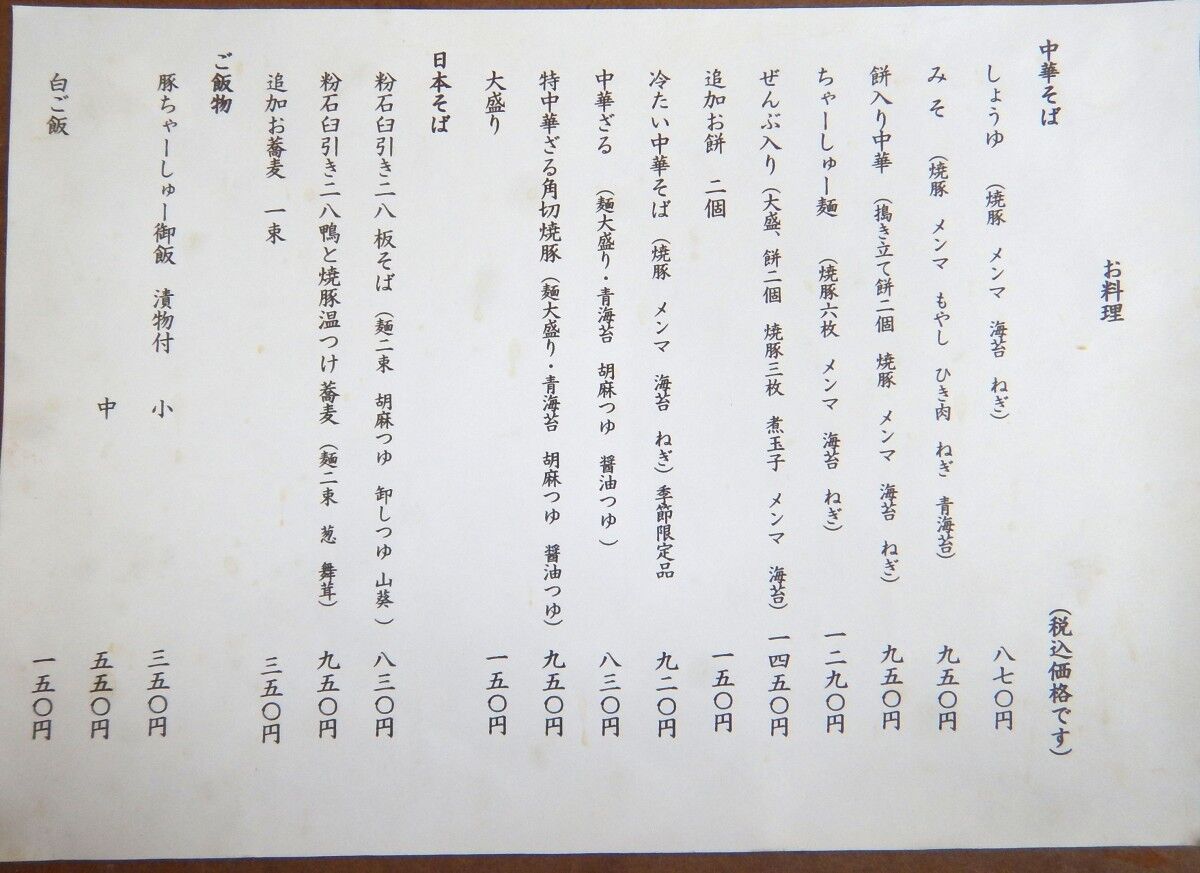 お料理
中華そば　（税込価格です）
しょうゆ　（焼豚　メンマ　海苔　ねぎ）　八七〇円
みそ　（焼豚　メンマ　もやし　ひき肉　ねぎ　青海苔）　九五〇円
餅入り中華　（搗き立て餅二個　焼豚　メンマ　海苔　ねぎ）　九五〇円
ちゃーしゅー麺　（焼豚六枚　メンマ　海苔　ねぎ）　一二九〇円
ぜんぶ入り（大盛、餅二個　焼豚三枚　煮玉子　メンマ　海苔）　一四五〇円
追加お餅　二個　一五〇円
冷たい中華そば（焼豚　メンマ　海苔　ねぎ）季節限定品　九二〇円
中華ざる　（麺大盛り・青海苔　胡麻つゆ　醤油つゆ）　八三〇円
特中華ざる角切焼豚（麺大盛り・青海苔　胡麻つゆ　醤油つゆ）　九五〇円
大盛り　一五〇円
日本そば
粉石臼引き二八 板そば（麺二束　胡麻つゆ　卸しつゆ 山葵）　八三〇円
粉石臼引き二八鴨と焼豚温つけ蕎麦（麺二束　葱　舞茸）　九五〇円
追加お蕎麦　一束　三五〇円
ご飯物
豚ちゃーしゅー御飯　漬物付　小　三五〇円
中　五五〇円
白ご飯　一五〇円